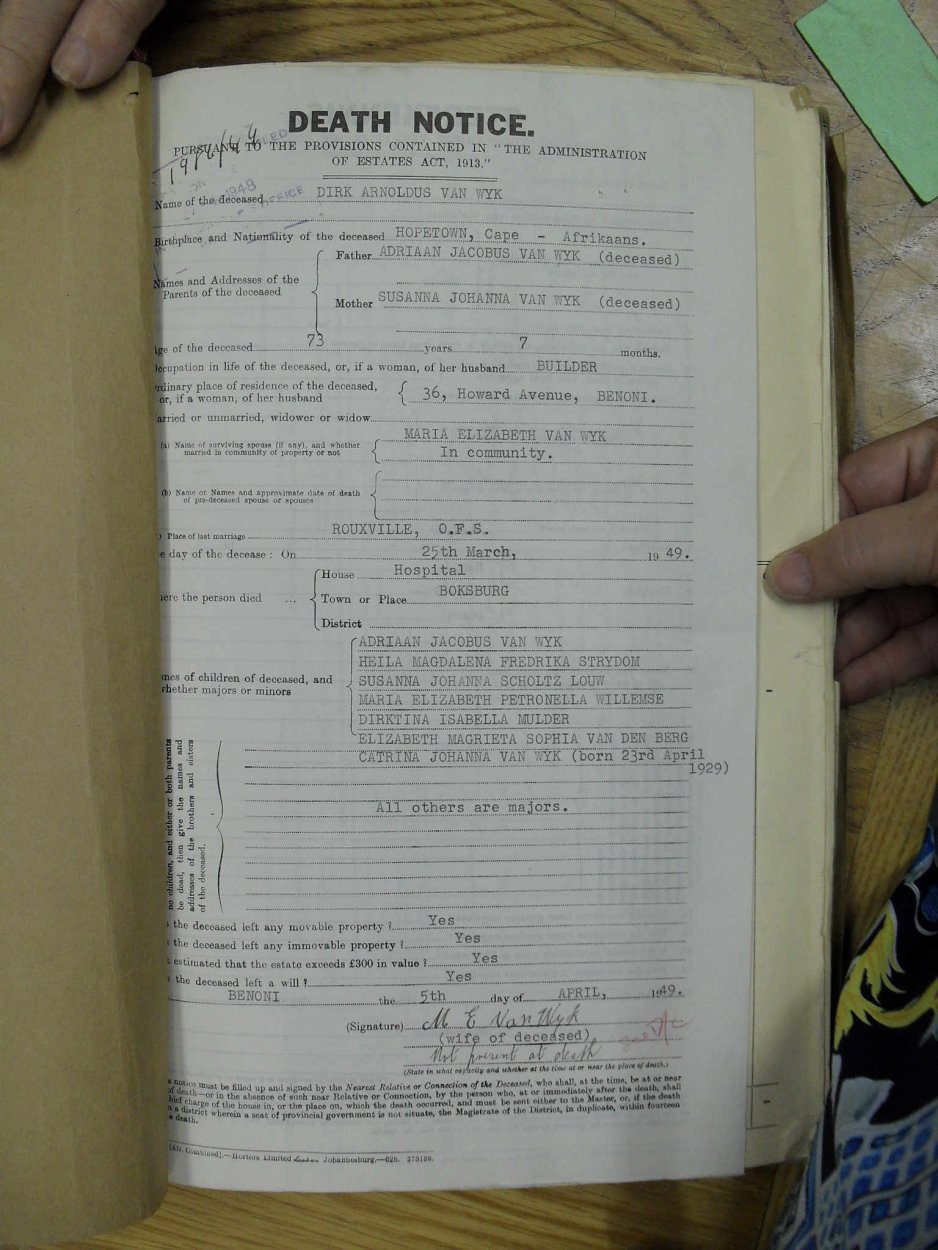 DEATH NOTICE.
PURSUANT TO THE PROVISIONS CONTAINED IN "THE ADMINISTRATION
OF ESTATES ACT, 1913."
1948
Name of the deceased DIRK ARNOLDUS VAN WYK
Birthplace and Nationality of the deceased HOPETOWN, Cape - Afrikaans.
Names and Addresses of the
Parents of the deceased
Father ADRIAAN JACOBUS VAN WYK (deceased)
Mother SUSANNA JOHANNA VAN WYK (deceased)
ge of the deceased 73 years 7 months.
ccupation in life of the deceased, or, if a woman, of her husband BUILDER
rdinary place of residence of the deceased,
or, if a woman, of her husband
36, Howard Avenue, BENONI.
arried or unmarried, widower or widow
(a) Name of surviving spouse (if any), and whether
married in community of property or not
MARIA ELIZABETH VAN WYK
In community.
(b) Name or Names and approximate date of death
of pre-deceased spouse or spouses
) Place of last marriage ROUXVILLE, O.F.S.
e day of the decease: On 25th March, 19 49.
ere the person died ...
House Hospital
Town or Place BOKSBURG
District
mes of children of deceased, and
whether majors or minors
ADRIAAN JACOBUS VAN WYK
HEILA MAGDALENA FREDRIKA STRYDOM
SUSANNA JOHANNA SCHOLTZ LOUW
MARIA ELIZABETH PETRONELLA WILLEMSE
DIRKTINA ISABELLA MULDER
ELIZABETH MAGRIETA SOPHIA VAN DEN BERG
CATRINA JOHANNA VAN WYK (born 23rd April
1929)
no children, and either or both parents
be dead, then give the names and
addresses of the brothers and sisters
of the deceased.
All others are majors.
the deceased left any movable property? Yes
the deceased left any immovable property? Yes
estimated that the estate exceeds £300 in value? Yes
the deceased left a will? Yes
BENONI the 5th day of APRIL, 1949.
(Signature) M E Van Wyk
(wife of deceased)
Not present at death
(State in what capacity and whether at the time at or near the place of death.)
a notice must be filled up and signed by the Nearest Relative or Connection of the Deceased, who shall, at the time, be at or near
of death—or in the absence of such near Relative or Connection, by the person who, at or immediately after the death, shall
hief charge of the house in, or the place on, which the death occurred, and must be sent either to the Master, or, if the death
n a district wherein a seat of provincial government is not situate, the Magistrate of the District, in duplicate, within fourteen
a death.
Combined].—Hortors Limited Johannesburg.—628. 373139.